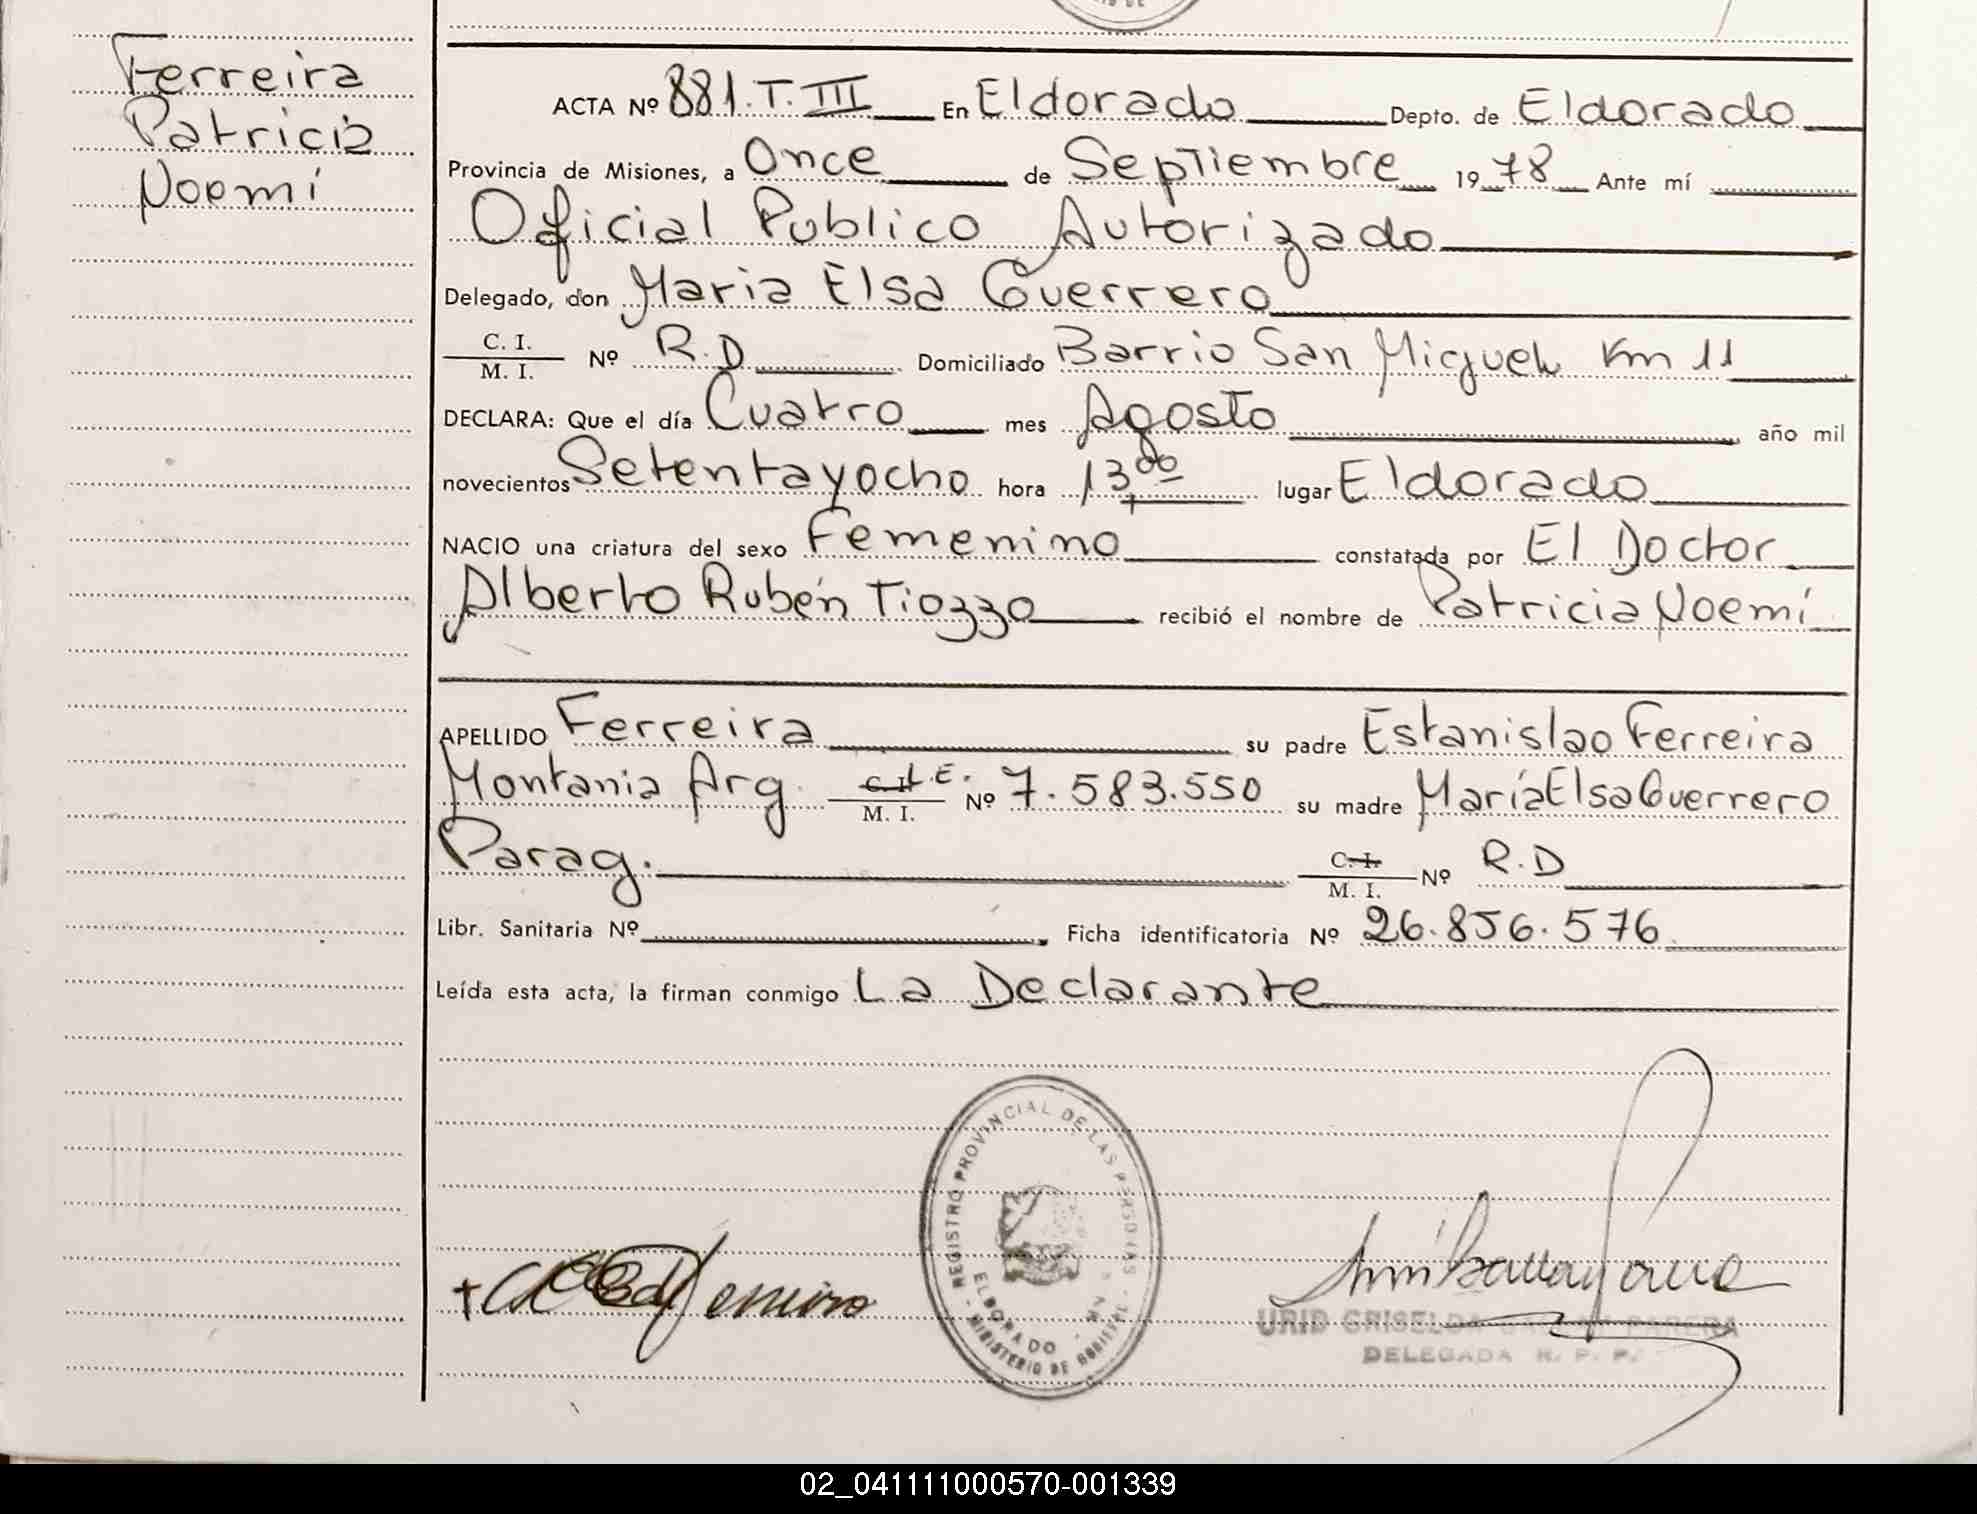 Ferreira
Patricia
Noemí
ACTA Nº 881.T.III En Eldorado Depto. de Eldorado
Provincia de Misiones, a Once de Septiembre 1978 Ante mí
Oficial Publico Autorizado
Delegado, don Maria Elsa Guerrero
C. I.
M. I. Nº R.D Domiciliado Barrio San Miguel Km 11
DECLARA: Que el día Cuatro mes Agosto año mil
novecientos Setentayocho hora 13,00 lugar Eldorado
NACIO una criatura del sexo Femenino constatada por El Doctor
Alberto Rubén Tiozzo recibió el nombre de Patricia Noemí
APELLIDO Ferreira su padre Estanislao Ferreira
Montania Arg. C. I. L.E. M. I. Nº 7.583.550 su madre María Elsa Guerrero
Parag. C. I. M. I. Nº R.D
Libr. Sanitaria Nº Ficha identificatoria Nº 26.856.576
Leída esta acta, la firman conmigo La Declarante
REGISTRO PROVINCIAL DE LAS PERSONAS
ELDORADO
MINISTERIO DE
URID GRISELDA PARERA
DELEGADA R. P. P.
02_041111000570-001339